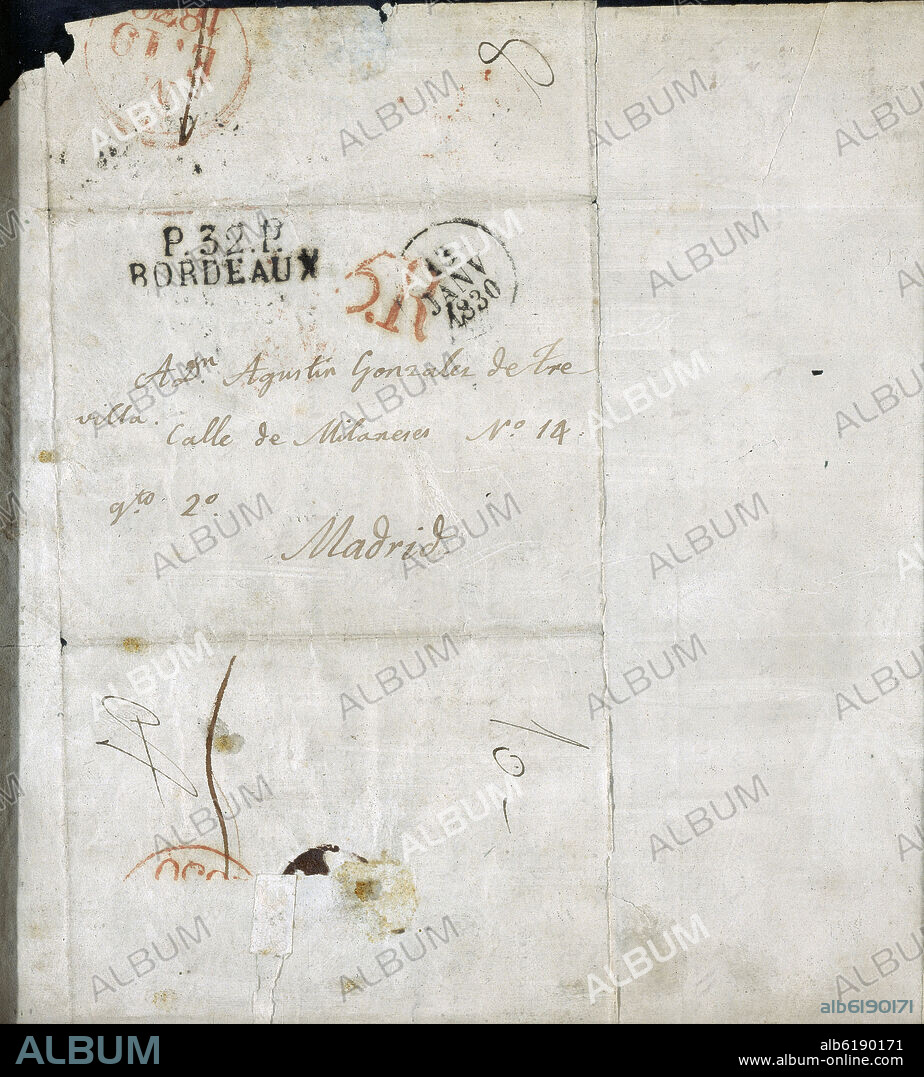 P.32.P.
BORDEAUX
13
JANV
1830
A Dn. Agustin Gonzalez de Tre-
villa.
Calle de Milaneses Nº 14.
qto 2º
Madrid
ALBUM
alb6190171
ALBUM
alb6190171
www.album-online.com